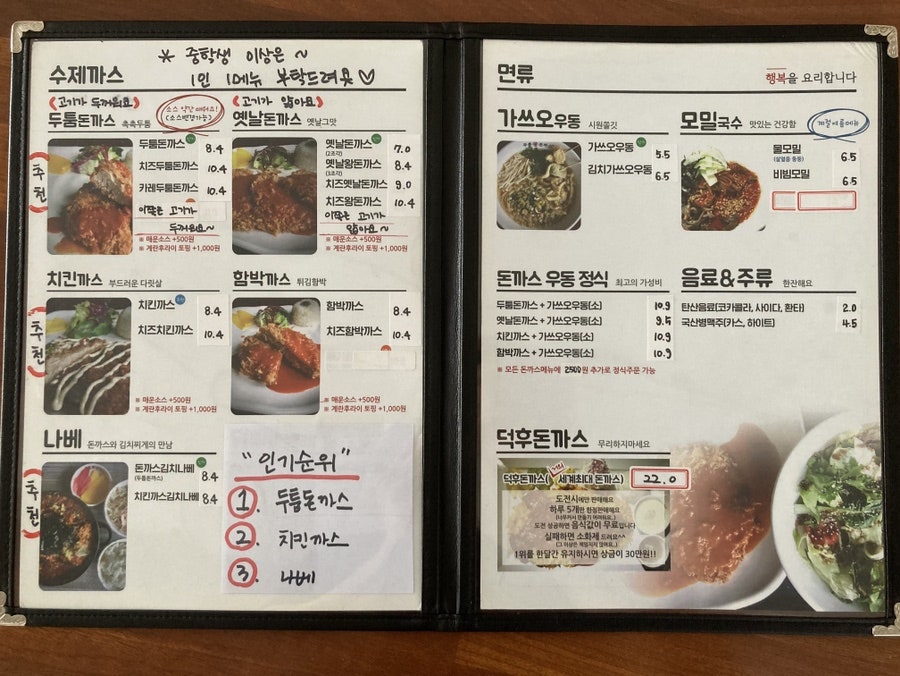 * 중학생 이상은 ~
1인 1메뉴 부탁드려욧♡
수제까스
(고기가 두꺼워요)
두툼돈까스 촉촉두툼
소스 약간 매워요!
(소스변경가능)
추천
두툼돈까스 8.4
치즈두툼돈까스 10.4
카레두툼돈까스 10.4
이쪽은 고기가
두꺼워요~
※ 매운소스 +500원
※ 계란후라이 토핑 +1,000원
(고기가 얇아요)
옛날돈까스 옛날그맛
옛날돈까스 7.0
(2조각)
옛날왕돈까스 8.4
(3조각)
치즈옛날돈까스 9.0
치즈왕돈까스 10.4
이쪽은 고기가
얇아요~
※ 매운소스 +500원
※ 계란후라이 토핑 +1,000원
치킨까스 부드러운 다릿살
추천
치킨까스 8.4
치즈치킨까스 10.4
※ 매운소스 +500원
※ 계란후라이 토핑 +1,000원
함박까스 튀김함박
함박까스 8.4
치즈함박까스 10.4
※ 매운소스 +500원
※ 계란후라이 토핑 +1,000원
나베 돈까스와 김치찌개의 만남
추천
돈까스김치나베 8.4
(두툼돈까스)
치킨까스김치나베 8.4
"인기순위"
1. 두툼돈까스
2. 치킨까스
3. 나베
면류
행복을 요리합니다
가쓰오우동 시원쫄깃
가쓰오우동 5.5
김치가쓰오우동 6.5
모밀국수 맛있는 건강함
계절여름메뉴
물모밀 6.5
(살얼음 동동)
비빔모밀 6.5
돈까스 우동 정식 최고의 가성비
두툼돈까스 + 가쓰오우동(소) 10.9
옛날돈까스 + 가쓰오우동(소) 9.5
치킨까스 + 가쓰오우동(소) 10.9
함박까스 + 가쓰오우동(소) 10.9
※ 모든 돈까스메뉴에 2500원 추가로 정식주문 가능
음료&주류 한잔해요
탄산음료(코카콜라, 사이다, 환타) 2.0
국산병맥주(카스, 하이트) 4.5
덕후돈까스 무리하지마세요
덕후돈까스( 세계최대 돈까스) 22.0
도전시에만 판매해요
하루 5개만 한정판매해요
(너무커서 만들기 어려워요..)
도전 성공하면 음식값이 무료입니다
실패하면 소화제 드려요^^
(그 이상은 책임지지 않아요..)
1위를 한달간 유지하시면 상금이 30만원!!